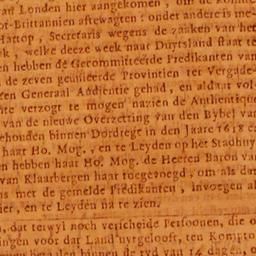 aut Londen hier aangekomen, om de
of-Brittannien aftewagten: onder andere is me-
Hattop, Secretaris wegens de zaaken van het
k, welke deeze week naar Duytsland staat te
en hebben de Gecommitteerde Predikanten van
de zeven geünieerde Provintien ter Vergade-
en Generaal Audientie gehad, en aldaar vol-
hte verzogt te mogen nazien de Authentique
van de nieuwe Overzetting van den Bybel va
ehouden binnen Dordregt in den Jaare 1618 e
haar Ho. Mog., en te Leyden op het Stadhuy
en hebben haar Ho. Mog. de Heeren Baron van
van Klaarbergen haar toegevoegd, om als da
ns met de gemelde Predikanten, invoegen al
ier, en te Leyden na te zien.
, dat terwyl noch verscheide Persoonen, die o
ingen voor dat Land uytgelooft, ten Kompto
betaalen binnen de tyd van 14 dagen, o